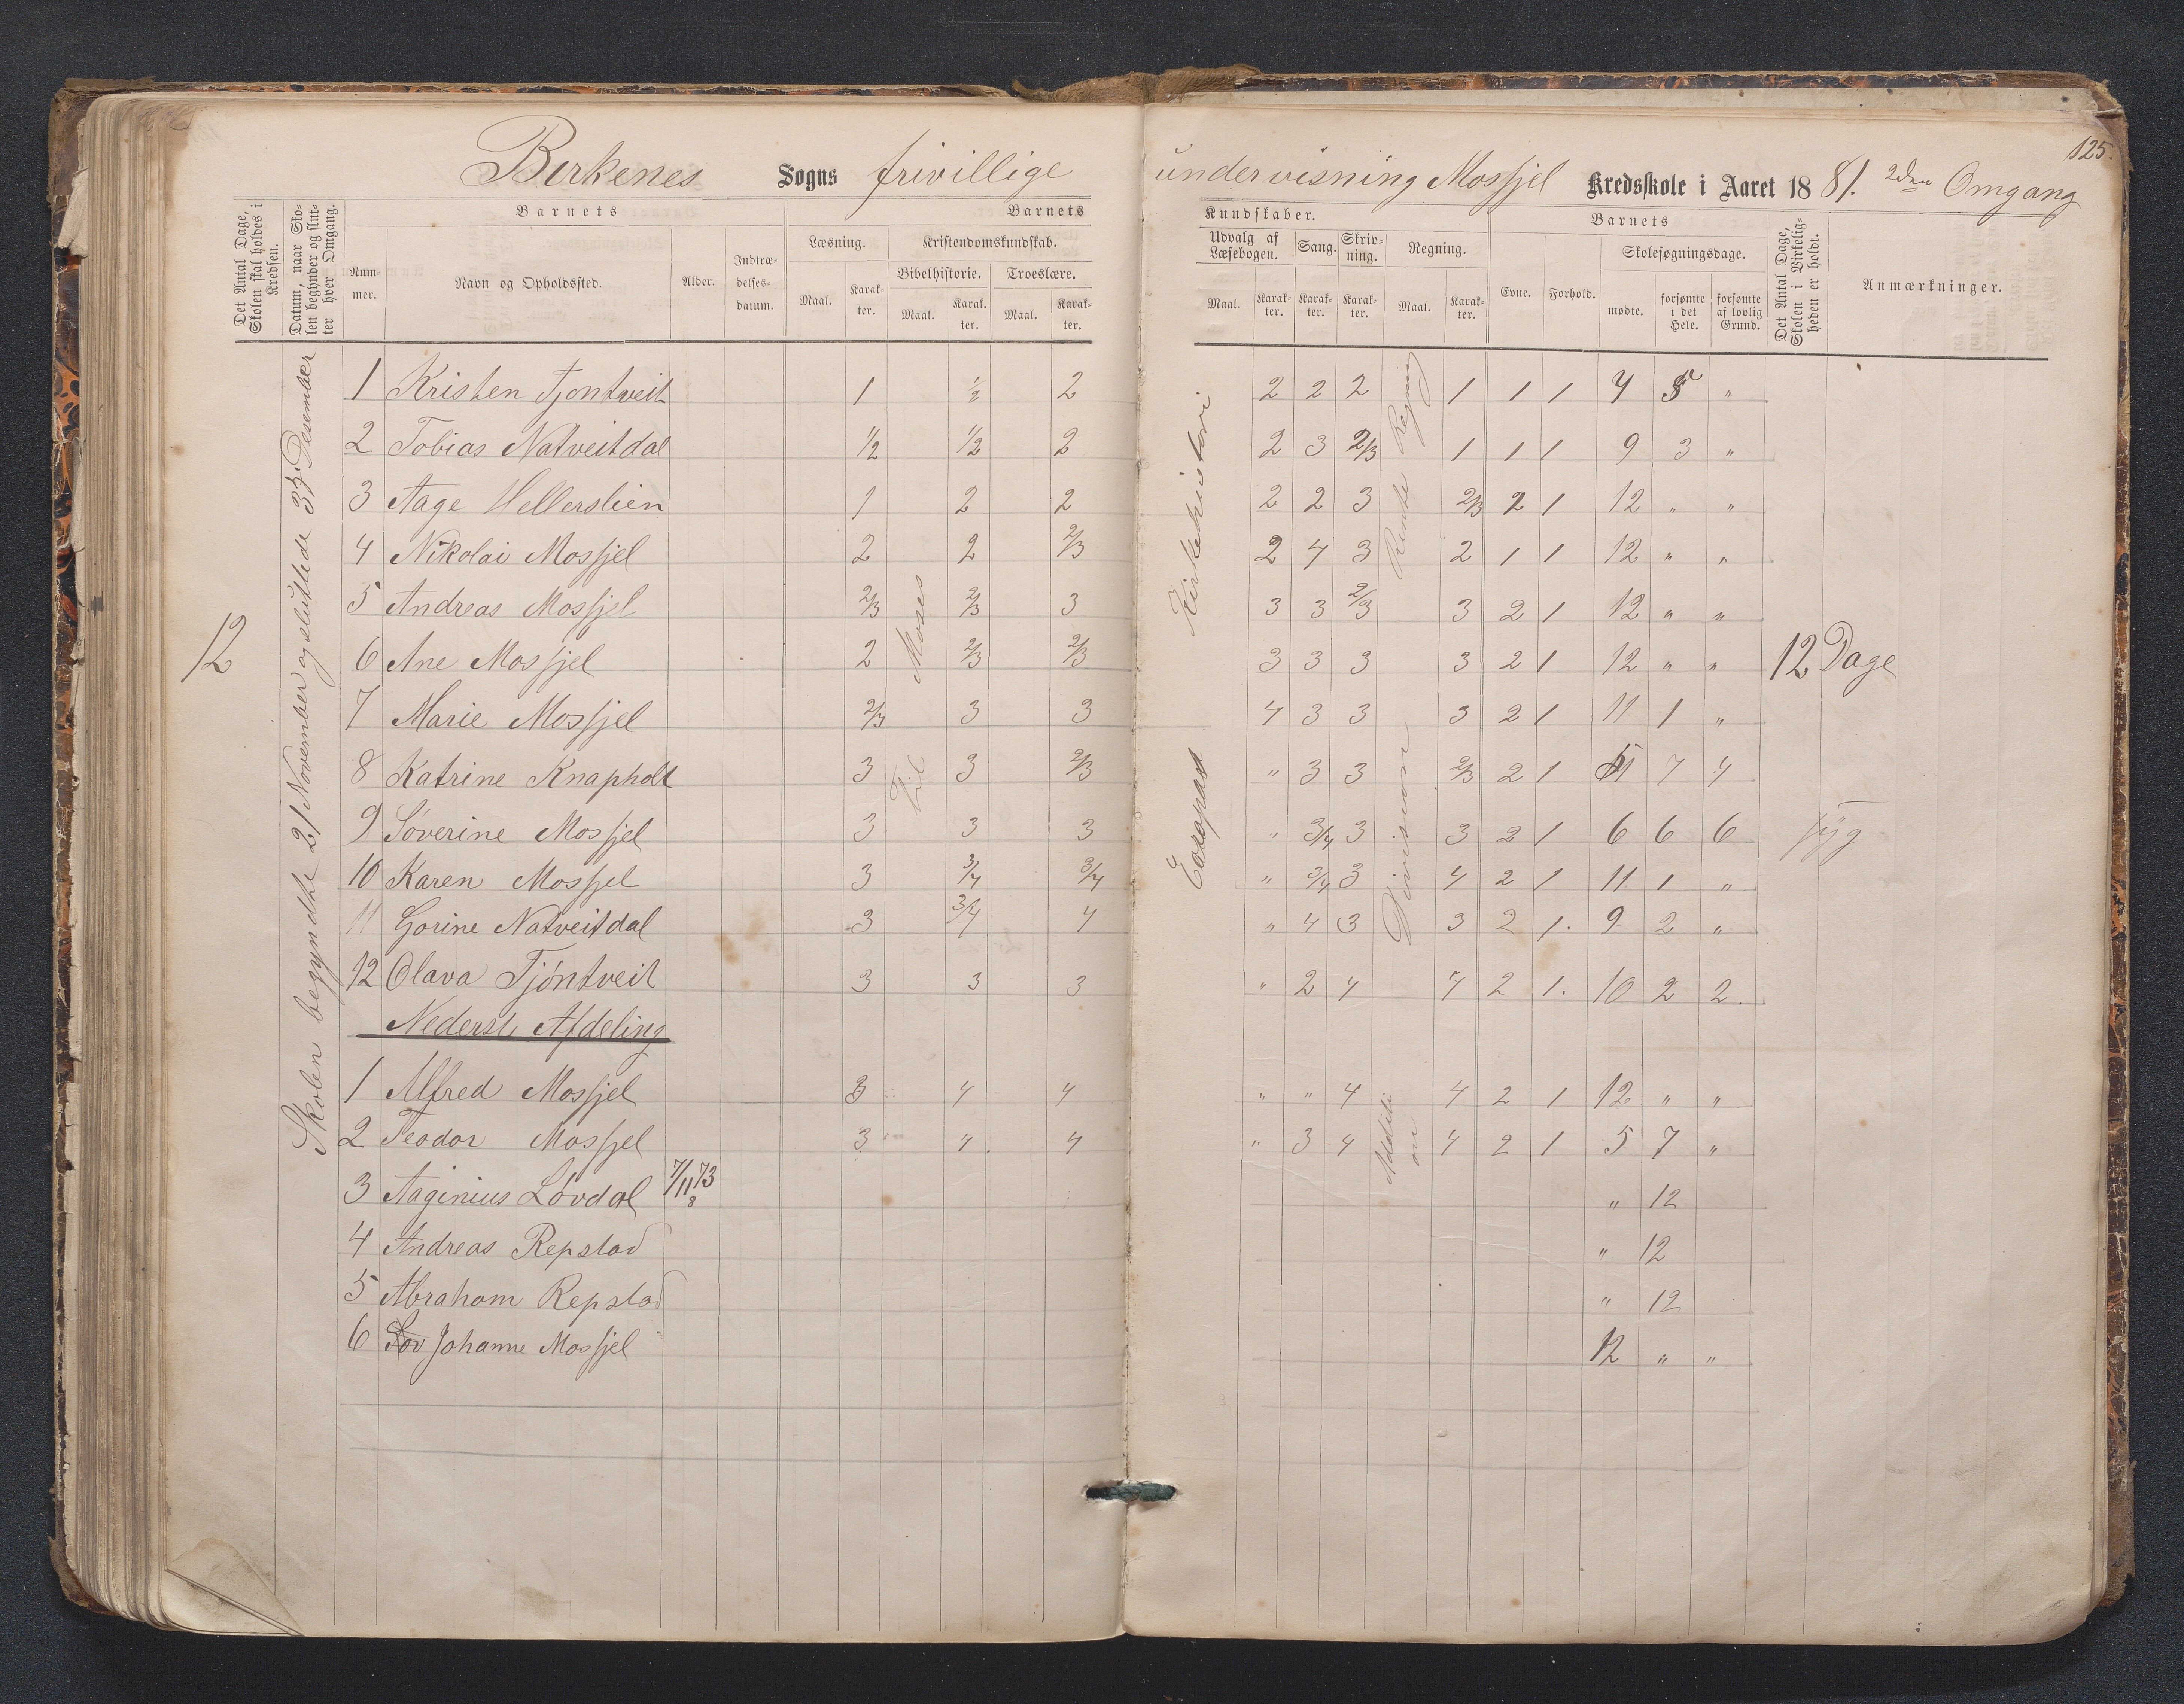 125.
Birkenes Sogns frivillige undervisning Mosfjel Kredsskole i Aaret 1881. 2den Omgang
Det Antal Dage, Skolen skal holdes i Kredsen.
Datum, naar Skolen begynder og slutter hver Omgang.
Barnets
Nummer.
Navn og Opholdssted.
Alder.
Indtrædelsesdatum.
Barnets
Læsning.
Maal.
Karakter.
Kristendomskundskab.
Bibelhistorie.
Maal.
Karakter.
Troeslære.
Maal.
Karakter.
Kundskaber.
Udvalg af Læsebogen.
Maal.
Karakter.
Sang.
Karakter.
Skrivning.
Karakter.
Regning.
Maal.
Karakter.
Barnets
Evne.
Forhold.
Skolesøgningsdage.
mødte.
forsømte i det Hele.
forsømte af lovlig Grund.
Det Antal Dage, Skolen i Virkeligheden er holdt.
Anmærkninger.
12
Skolen begyndte 21 November og sluttede Desember
Til Moses
Kirkehistori
Rente Regning
Division
Addition
1 Kristen Tjontveit 1 ½ 2 2 2 2 1 1 1 4 5 "
2 Tobias Natveitdal ½ ½ 2 2 3 2/3 1 1 1 9 3 "
3 Aage Hellerslien 1 2 2 2 2 3 2/3 2 1 12 " "
4 Nikolai Mosfjel 2 2 2/3 2 4 3 2 1 1 12 " "
5 Andreas Mosfjel 2/3 2/3 3 3 3 2/3 3 2 1 12 " "
6 Ane Mosfjel 2 2/3 2/3 3 3 3 3 2 1 12 " " 12 Dage
7 Marie Mosfjel 2/3 3 3 4 3 3 3 2 1 11 1 "
8 Katrine Knapholt 3 3 2/3 " 3 3 2/3 2 1 7 4
9 Severine Mosfjel 3 3 3 " 3/4 3 3 2 1 6 6 6 syg
10 Karen Mosfjel 3 3/4 3/4 " 3/4 3 4 2 1 11 1 "
11 Gorine Natveitdal 3 3/4 4 " 4 3 3 2 1. 9 2 "
12 Olava Tjöntveit 3 3 3 " 2 4 4 2 1. 10 2 2.
Nederst Afdeling
1 Alfred Mosfjel 3 4 4 " " 4 4 2 1 12 " "
2 Teodor Mosfjel 3 4 4 " 3 4 4 2 1 5 7 "
3 Aaginius Lövdal 7/11 73 8 " 12
4 Andreas Repstad " 12
5 Abraham Repstad " 12
6 Lov Johanne Mosfjel 12 " "